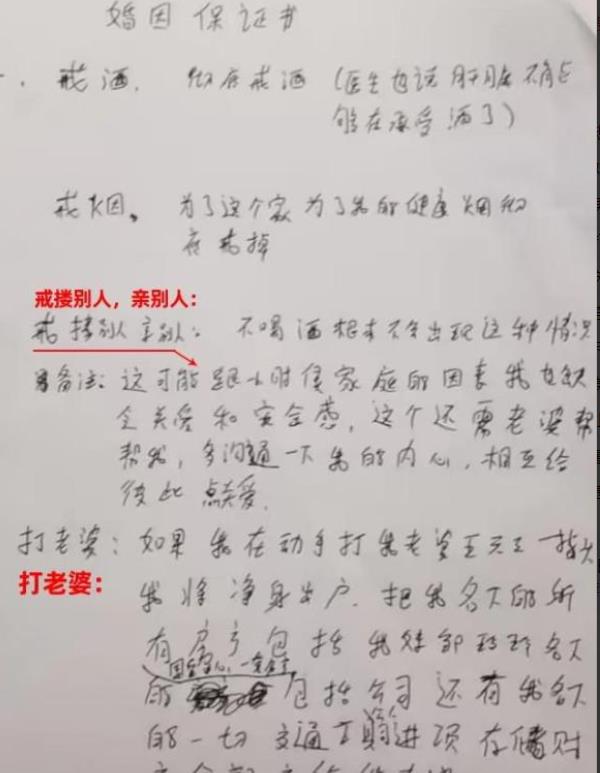 婚因保证书
一.戒酒.彻底戒酒(医生也说肝脏不能
够在承受酒了)
戒烟。为了这个家为了我的健康烟彻
底戒掉
戒搂别人，亲别人：
戒搂别人亲别人：不喝酒根本不会出现这种情况
备注：这可能跟小时侯家庭的因素我也缺
全关爱和安全感，这个还需老婆帮
帮我，多沟通一下我的内心，相互给
彼此点关爱.
打老婆：如果我在动手打我老婆王 一指头
打老婆：
我将净身出户.把我名下的所
有房产包括我妹邹 名下
的 包括公司还有我名下
的一切交通工具 进项存储财